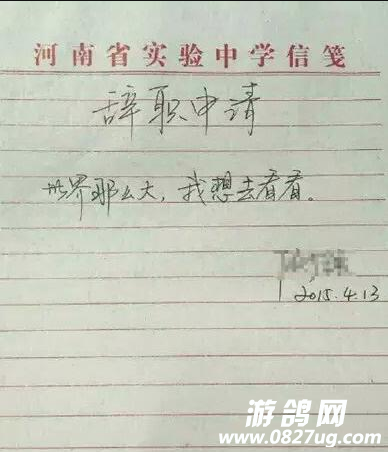 河南省实验中学信笺
辞职申请
世界那么大，我想去看看。
2015.4.13
游鸽网
www.0827ug.com